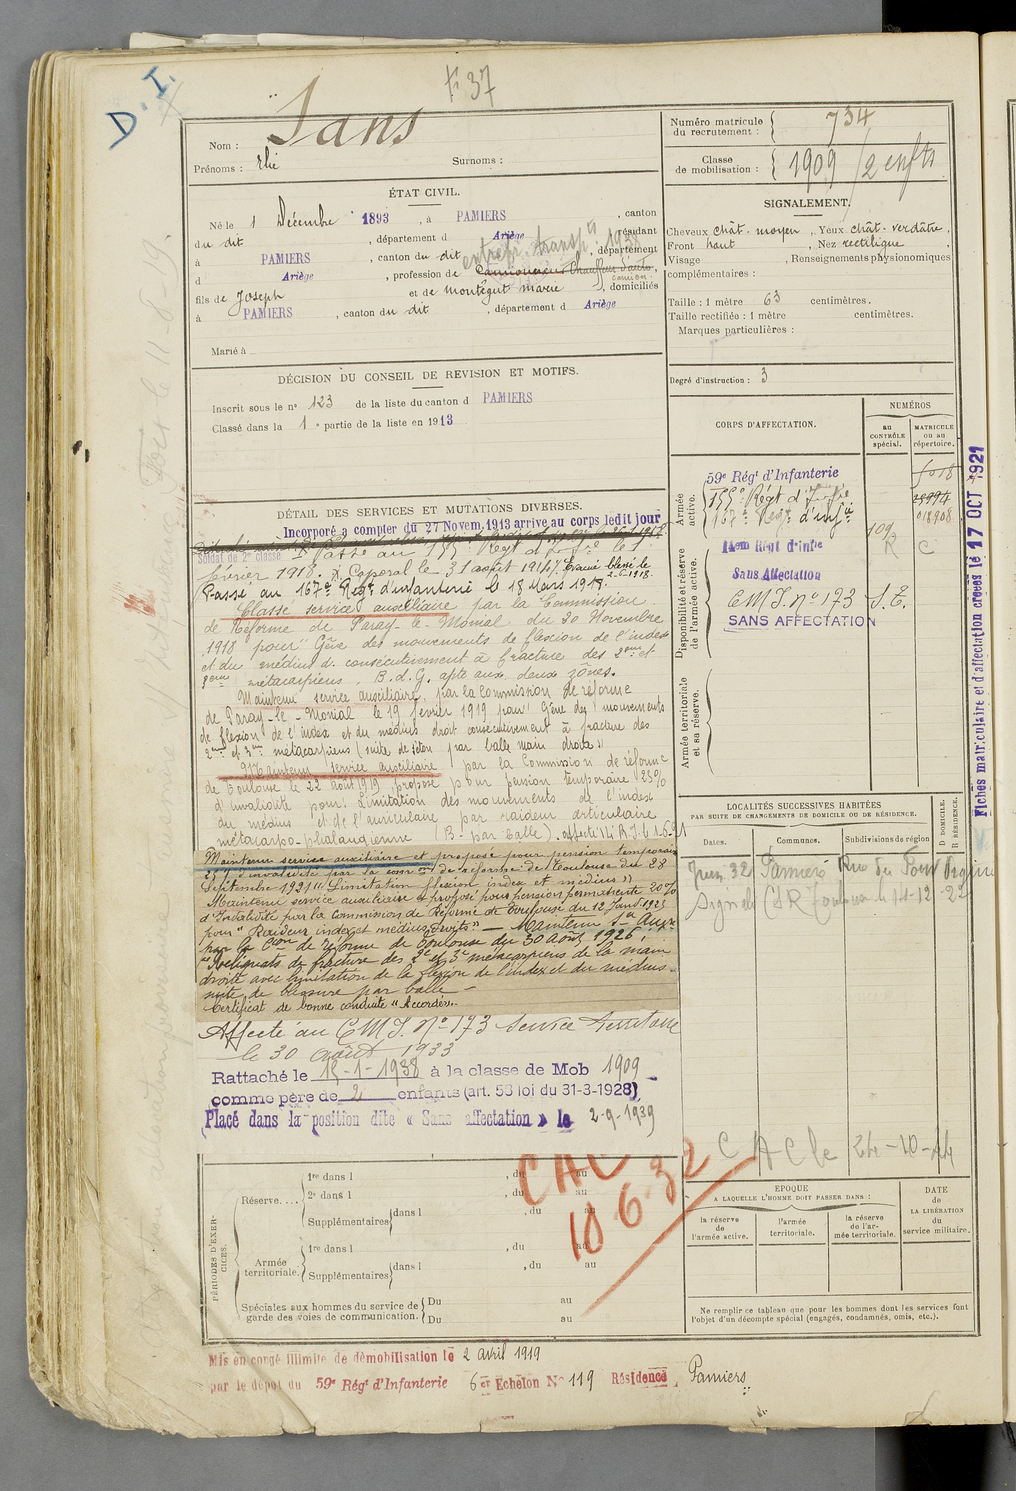 D. I.
F 37
Nom : Sans
Prénoms : Elie Surnoms :
ÉTAT CIVIL.
Né le 1 Décembre 1893, à PAMIERS, canton
du dit, département d Ariège, résidant
à PAMIERS, canton du dit, département
d Ariège, profession de Camionneur Chauffeur d'auto,
entrepr. transpts 1938
camion
fils de Joseph et de Montégut Marie, domiciliés
à PAMIERS, canton du dit, département d Ariège
Marié à
DÉCISION DU CONSEIL DE REVISION ET MOTIFS.
Inscrit sous le n° 123 de la liste du canton d PAMIERS
Classé dans la 1e partie de la liste en 1913
DÉTAIL DES SERVICES ET MUTATIONS DIVERSES.
Incorporé a compter du 27 Novem. 1913 arrivé au corps ledit jour
Soldat de 2e classe
Passé au 155e Régt d'Infie le 1
février 1918. Caporal le 31 août 1914. Evacué blessé le
2-6-1918.
Passé au 167e Régt d'infanterie le 18 Mars 1918.
Classé service auxiliaire par la Commission
de Réforme de Paray-le-Monial du 20 Novembre
1918 pour "Gêne des mouvements de flexion de l'index
et du médius d. consécutivement à fracture des 2eme et
3eme métacarpiens. B.d.G. apte aux deux zônes.
Maintenu service auxiliaire, par la Commission de réforme
de Paray-le-Monial le 19 février 1919 pour "Gêne des mouvements
de flexion de l'index et du médius droit consécutivement à fracture des
2eme et 3eme métacarpiens (suite de par balle main droite"
Maintenu service auxiliaire par la Commission de réforme
de Toulouse le 22 août 1919 proposé pour pension temporaire 25%
d'invalidité pour: Limitation des mouvements de l'index
du médius et de l'auriculaire par raideur articulaire
métacarpo-phalangienne (B. par balle). Affecté 14 R.I. le 1.6.21
Maintenu service auxiliaire et proposé pour pension temporaire
25% d'invalidité par la comon de réforme de Toulouse du 28
Septembre 1921 "Limitation flexion index et médius"
Maintenu service auxiliaire et proposé pour pension permanente 20%
d'Invalidité par la Commission de Réforme de Toulouse du 12 Janv 1923
pour "Raideur index et médius droits" — Maintenu Sce Auxre
par la Cion de réforme de Toulouse du 30 Août 1926
"Reliquats de fracture des 2e et 3e métacarpiens de la main
droite avec limitation de la flexion de l'index et du médius
suite de blessure par balle —
Certificat de bonne conduite "Accordé".
Affecté au CMI. N° 173 Service Territoire
le 30 août 1933
Rattaché le 15-1-1938 à la classe de Mob 1909
comme père de 2 enfants (art. 58 loi du 31-3-1928)
Placé dans la position dite « Sans affectation » le 2-9-1939
PÉRIODES D'EXERCICES.
Réserve....
1re dans l , du au
2e dans l , du au
Supplémentaires dans l , du au
Armée territoriale.
1re dans l , du au
Supplémentaires dans l , du au
Spéciales aux hommes du service de garde des voies de communication.
Du au
Du au
CAC
18 6 32
Mis en congé illimité de démobilisation le 2 avril 1919
par le dépôt du 59e Régt d'Infanterie 6er Echelon N° 119 Résidence Pamiers
Numéro matricule du recrutement : 734
Classe de mobilisation : 1909 / 2 enfts
SIGNALEMENT.
Cheveux chât. moyen, Yeux chât. verdâtre,
Front haut, Nez rectiligne,
Visage , Renseignements physionomiques
complémentaires :
Taille : 1 mètre 63 centimètres.
Taille rectifiée : 1 mètre centimètres.
Marques particulières :
Degré d'instruction : 3
CORPS D'AFFECTATION.
NUMÉROS
au CONTRÔLE spécial.
MATRICULE ou au répertoire.
Armée active.
59e Régt d'Infanterie
155e Régt d'Infie
167e Régt d'infie
018908
Disponibilité et réserve de l'armée active.
14em Régt d'Infie
109
R C
Sans Affectation
CMI. N° 173 S.T.
SANS AFFECTATION
Armée territoriale et sa réserve.
Fiches matriculaire et d'affectation créées le 17 OCT 1921
LOCALITÉS SUCCESSIVES HABITÉES
PAR SUITE DE CHANGEMENTS DE DOMICILE OU DE RÉSIDENCE.
Dates.
Communes.
Subdivisions de région
D DOMICILE.
R RÉSIDENCE.
Juin 32 Pamiers Rue du Pont
Signalé CSR Toulouse le 14-12-22
CAC le 24-10-44
EPOQUE
A LAQUELLE L'HOMME DOIT PASSER DANS :
la réserve de l'armée active.
l'armée territoriale.
la réserve de l'armée territoriale.
DATE de LA LIBÉRATION du service militaire.
Ne remplir ce tableau que pour les hommes dont les services font
l'objet d'un décompte spécial (engagés, condamnés, omis, etc.).